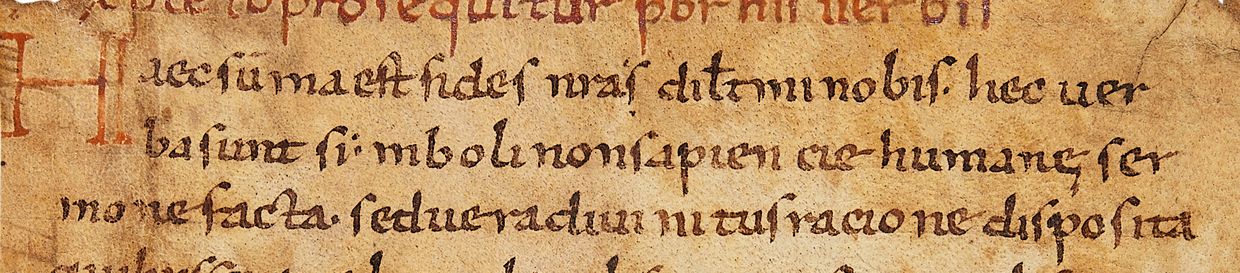 prosequitur pbr his verbis
Haec sūma est fides nr̄as dilt̄mi nobis. hec uer
ba sunt simboli non sapiencie humanę ser
mone facta. sed uera diuinitus racione disposita